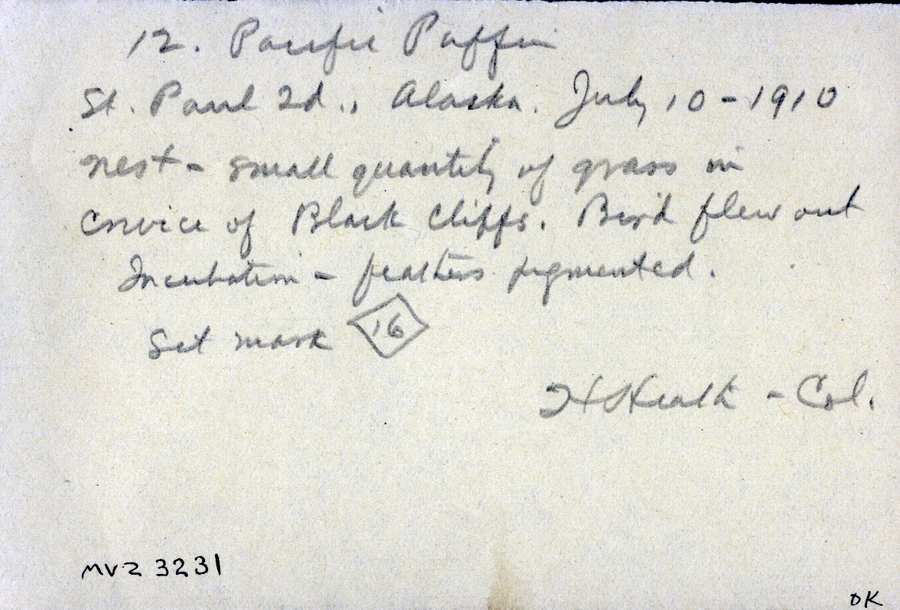 12. Pacific Puffin
St. Paul Id., Alaska. July 10-1910
nest - small quantity of grass in
crevice of Black Cliffs. Bird flew out
Incubation - feathers pigmented.
Set mark 16
H Heath - Col.
MVZ 3231
OK